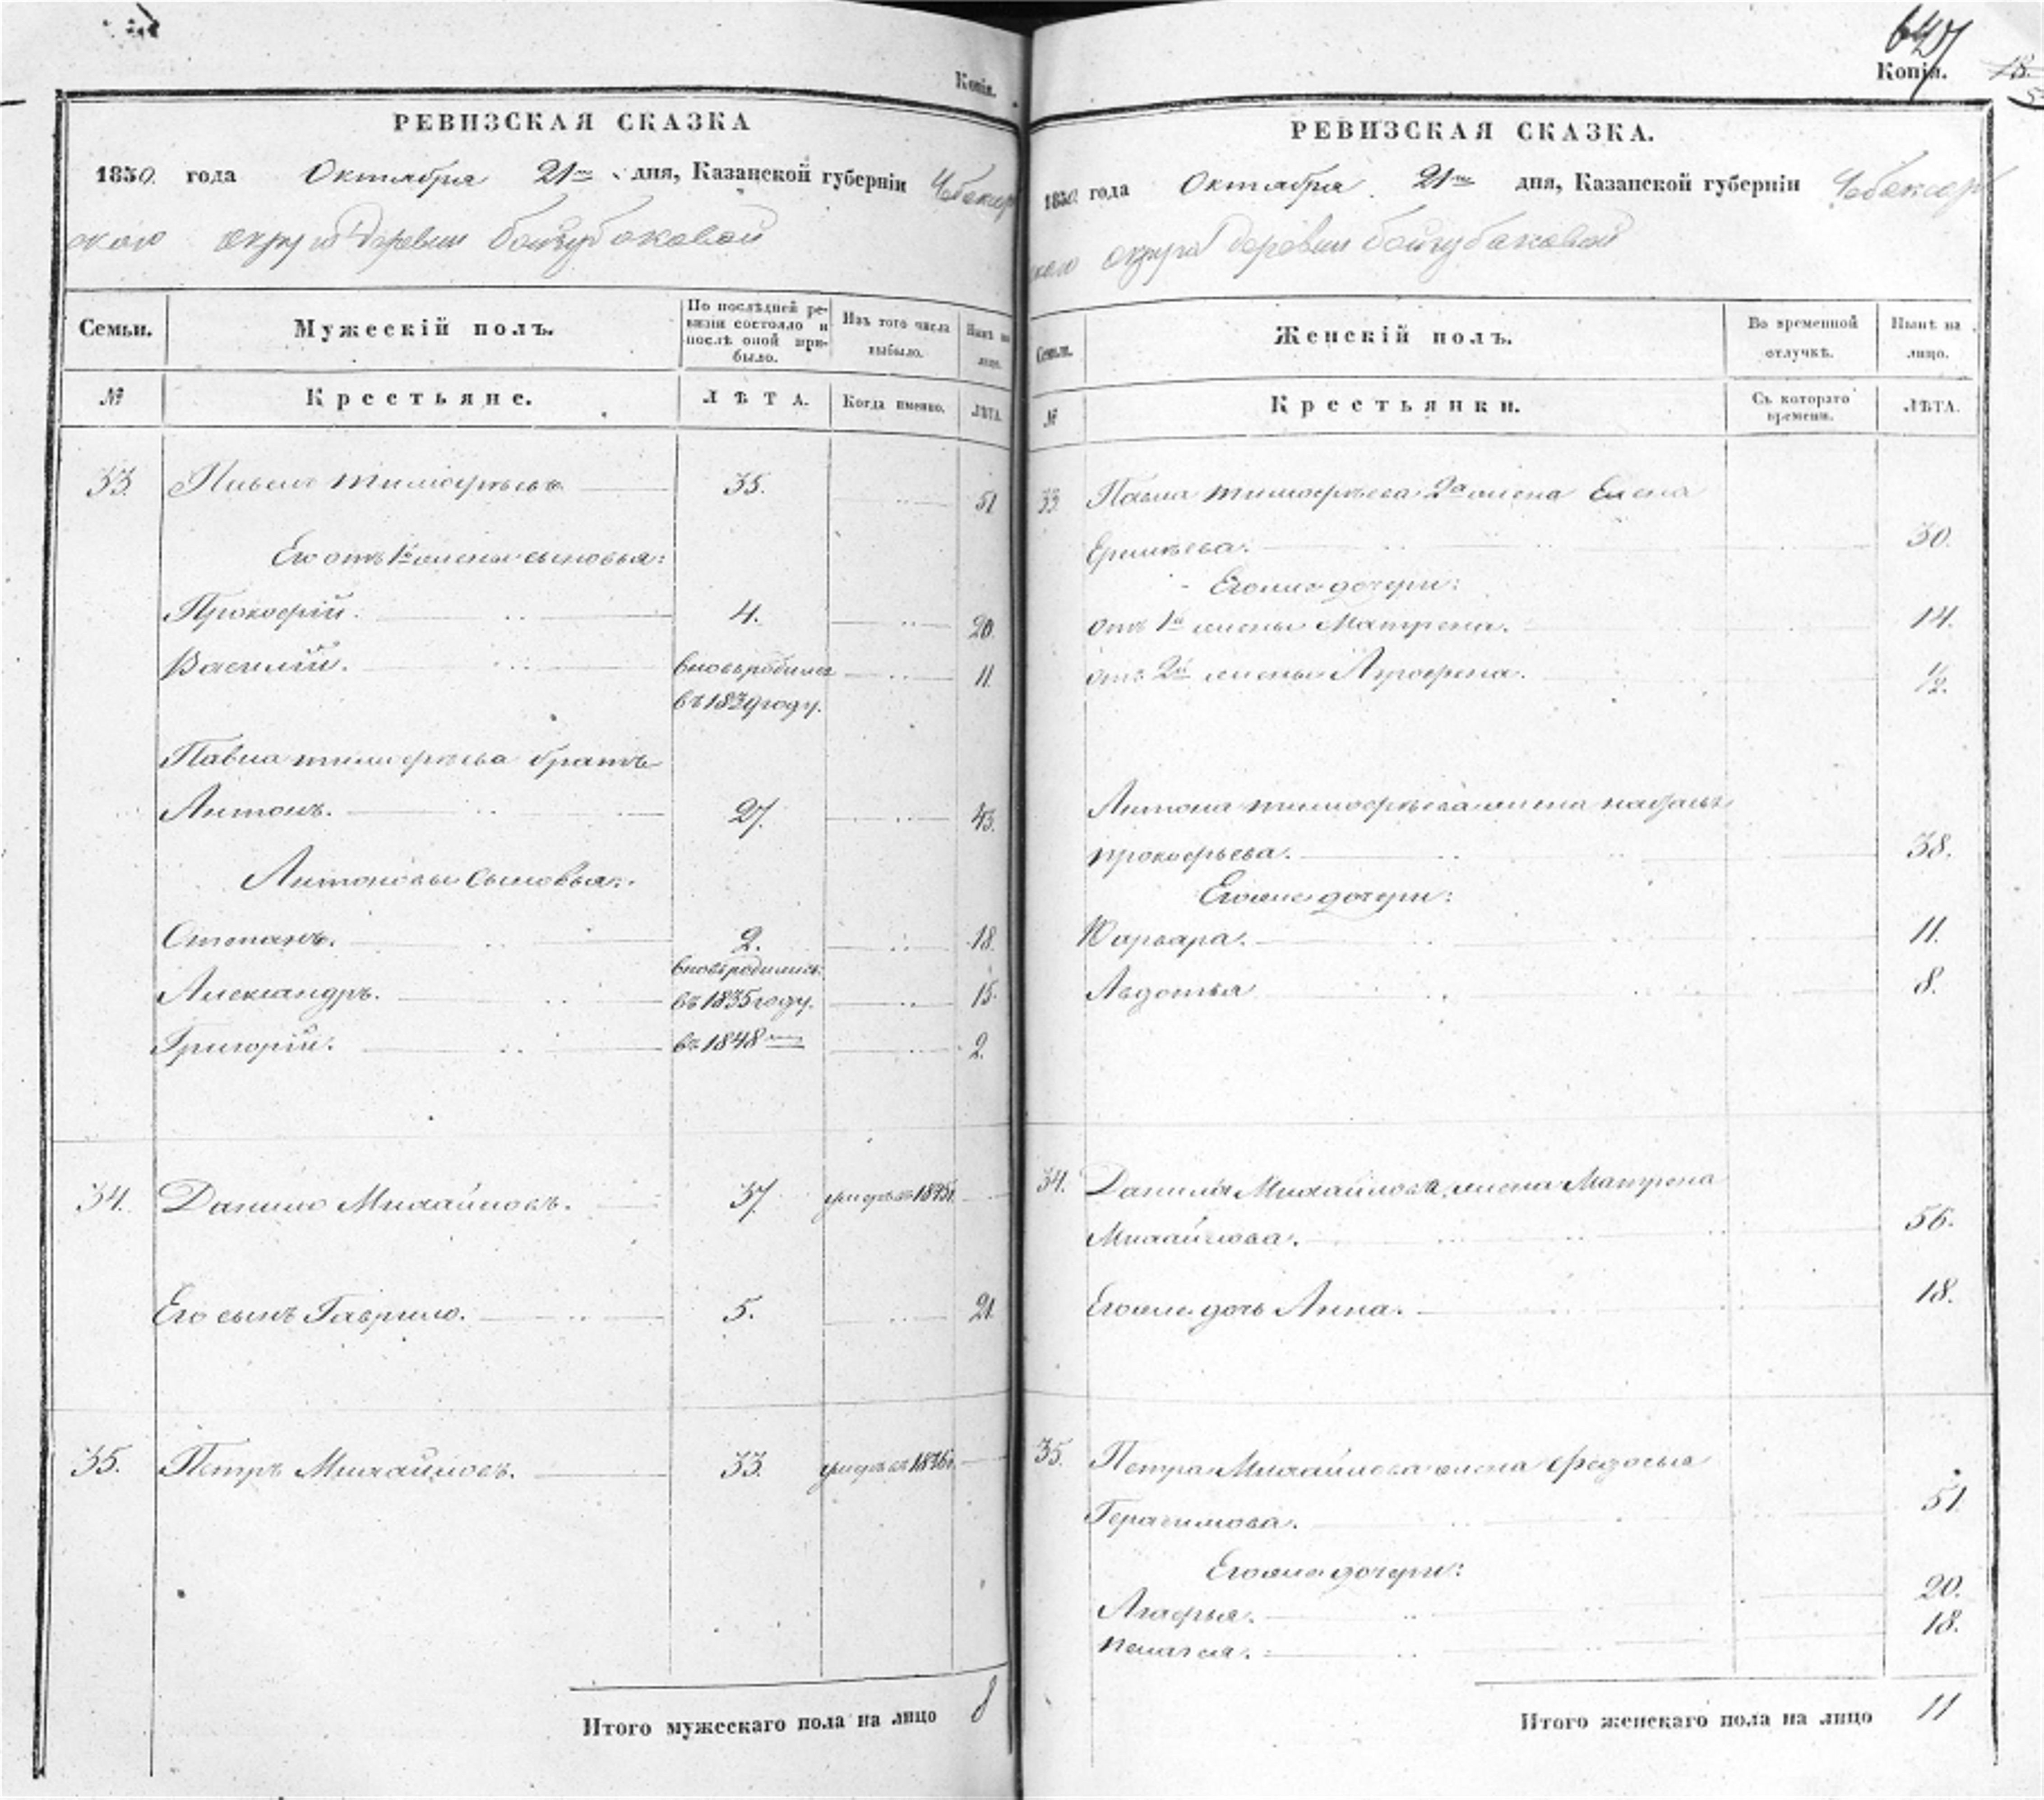 Копія.
РЕВИЗСКАЯ СКАЗКА
1850. года Октября 21го дня, Казанской губерніи Чебоксар
скаго округа деревни
Семьи. Мужескій полъ. По послѣдней ре-визіи состояло и послѣ оной при-было. Изъ того числа выбыло. Нынѣ на лицо.
№ Крестьяне. ЛѢТА. Когда именно. ЛѢТА.
33. Павелъ Тимофѣевъ 35. 51
Его отъ 1й жены сыновья:
Прокофій. 4. 20.
Василій. вновь родился 11.
въ 1839 году.
Павла Тимофѣева братъ
Антонъ. 27. 43.
Антоновы сыновья:
Степанъ. 2. 18.
вновь родились:
Александръ. въ 1835 году. 15.
Григорій. въ 1848 2.
34. Данило Михайловъ. 37.
Его сынъ Гаврило. 5. 21.
35. Петръ Михайловъ. 33.
Итого мужескаго пола на лицо 8
647
Копія. 18.
РЕВИЗСКАЯ СКАЗКА.
1850 года Октября 21го дня, Казанской губерніи Чебоксар
скаго округа деревни
Семьи. Женскій полъ. Во временной отлучкѣ. Нынѣ на лицо.
№ Крестьянки. Съ котораго времени. ЛѢТА.
33. Павла Тимофѣева 2я жена Елена
30.
Его же дочери:
отъ 1й жены Матрена. 14.
отъ 2й жены 1/2.
Антона Тимофѣева жена
Прокофьева. 38.
Его же дочери:
Варвара. 11.
Авдотья 8.
34. Данилы Михайлова жена Матрена
Михайлова. 56.
Его же дочь Анна. 18.
35. Петра Михайлова жена Федосья
Герасимова. 51.
Его же дочери:
Агафья. 20.
Пелагея. 18.
Итого женскаго пола на лицо 11